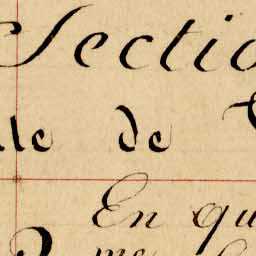 Sectio
de de
En qu
me